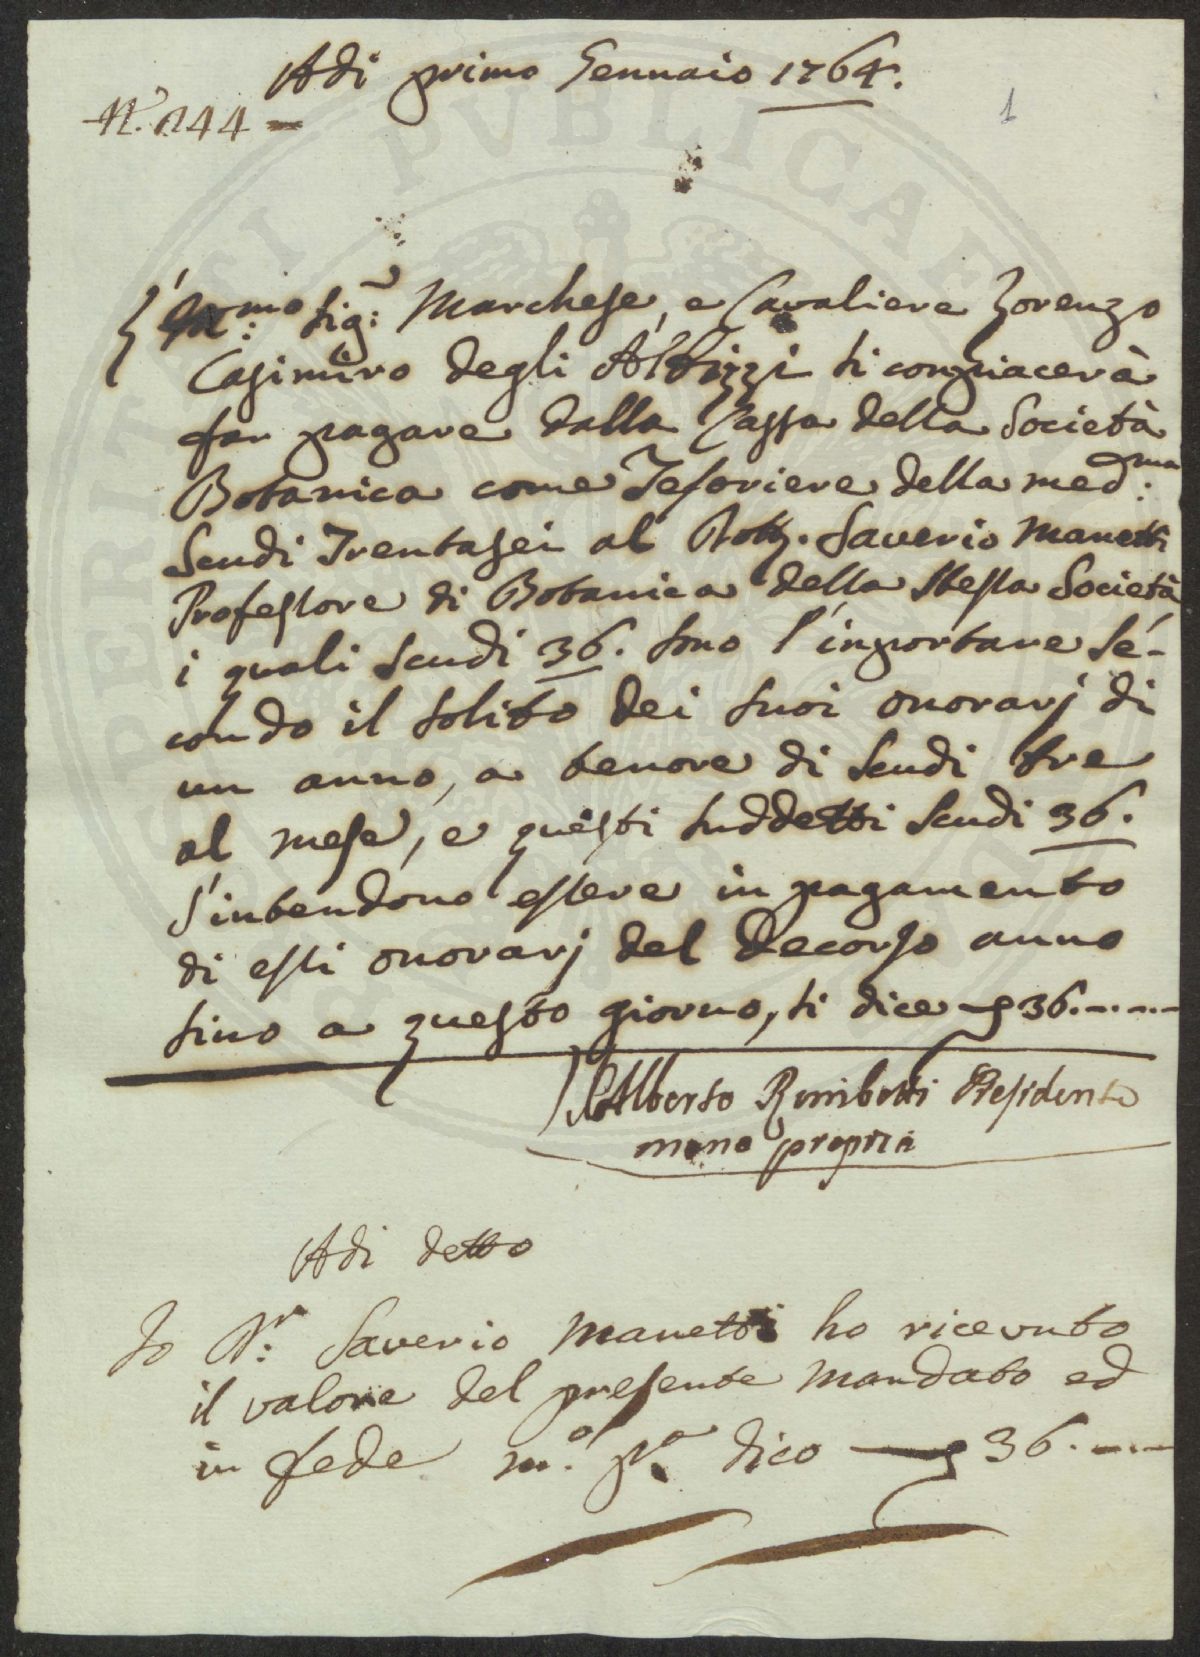 Adì primo Gennaio 1764.
N.º 244
1
L'Ill:mo Sig:r Marchese, e Cavaliere Lorenzo
Casimiro degli Albizzi si compiacerà
far pagare dalla Cassa della Società
Botanica come Tesoriere della med:ma
Scudi Trentasei al Dott. Saverio Manetti
Professore di Botanica della stessa Società
i quali scudi 36. sono l'importare se-
condo il solito dei suoi onorarj di
un anno, a tenore di scudi tre
al mese, e questi suddetti scudi 36.
s'intendono essere in pagamento
di essi onorarj del decorso anno
sino a questo giorno, si dice 36.
Alberto Rimbotti Presidente
mano propria
Adì detto
Io Dr: Saverio Manetti ho ricevuto
il valore del presente mandato ed
in fede m.º p.ª dico 36.
PERITI PVBLICAE